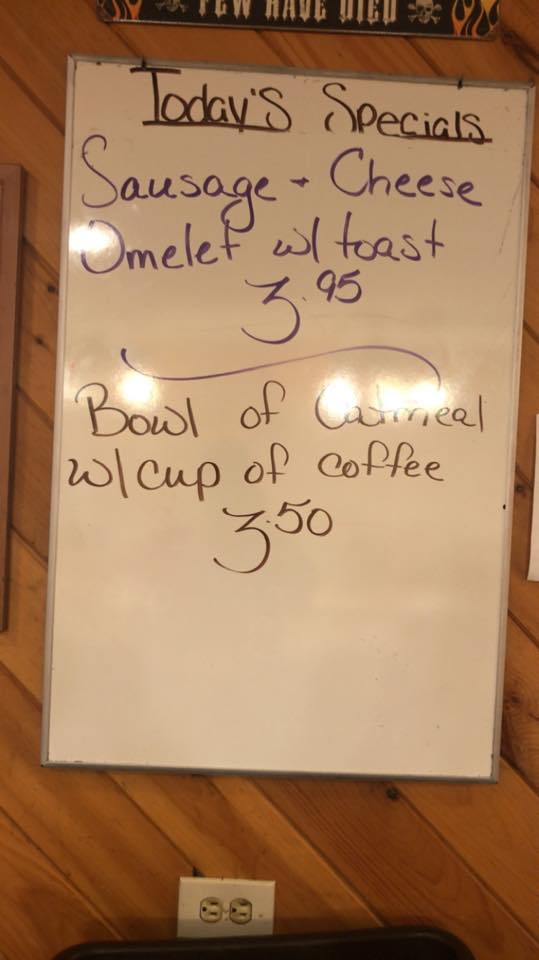 FEW HAVE DIED
Today's Specials
Sausage + Cheese
Omelet w/ toast
3.95
Bowl of Oatmeal
w/ cup of coffee
3.50